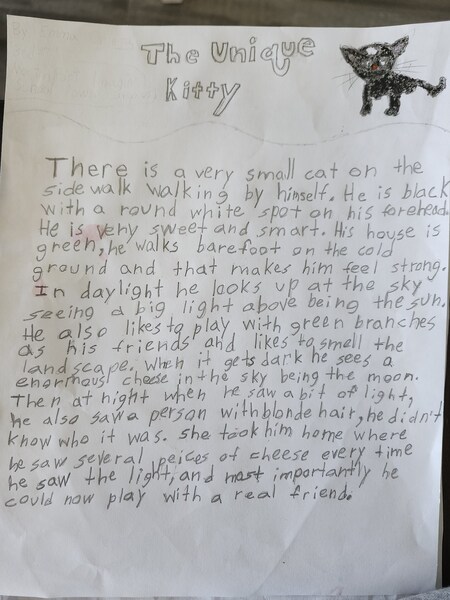 The Unique
Kitty
There is a very small cat on the
side walk walking by himself. He is black
with a round white spot on his forehead.
He is very sweet and smart. His house is
green, he walks barefoot on the cold
ground and that makes him feel strong.
In daylight he looks up at the sky
seeing a big light above being the sun.
He also likes to play with green branches
as his friends and likes to smell the
landscape. When it gets dark he sees a
enormous cheese in the sky being the moon.
Then at night when he saw a bit of light,
he also saw a person with blonde hair, he didn't
know who it was. She took him home where
he saw several peices of cheese every time
he saw the light, and most importantly he
could now play with a real friend.